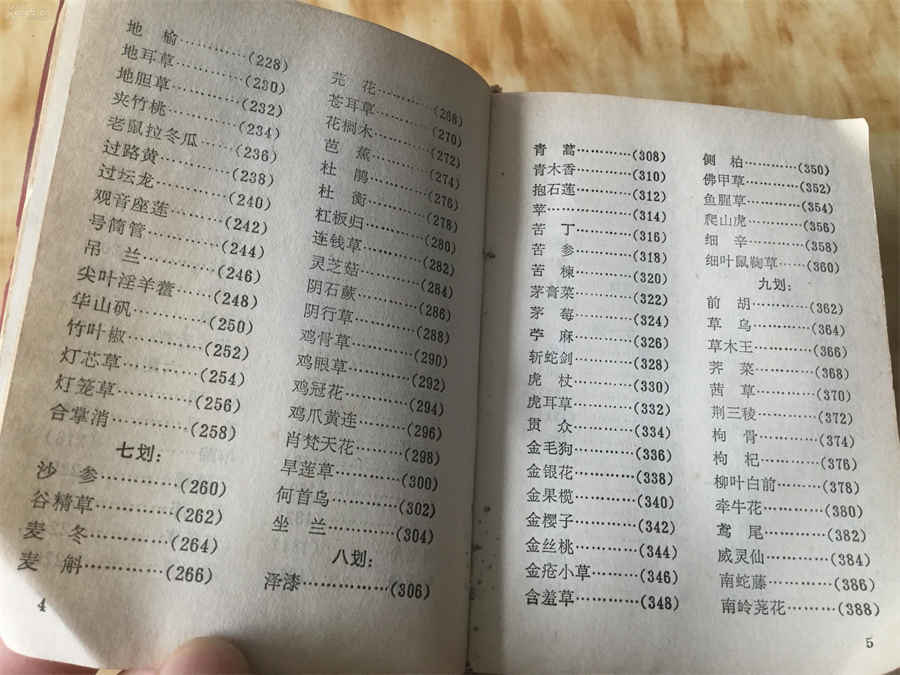 地 榆…………(228)
地耳草…………(230)
地胆草…………(232)
夹竹桃…………(234)
老鼠拉冬瓜……(236)
过路黄…………(238)
过坛龙…………(240)
观音座莲………(242)
号筒管…………(244)
吊 兰…………(246)
尖叶淫羊藿……(248)
华山矾…………(250)
竹叶椒…………(252)
灯芯草…………(254)
灯笼草…………(256)
合掌消…………(258)
七划:
沙 参…………(260)
谷精草…………(262)
麦 冬…………(264)
麦 斛…………(266)
芫 花…………(268)
苍耳草…………(270)
花榈木…………(272)
芭 蕉…………(274)
杜 鹃…………(276)
杜 衡…………(278)
杠板归…………(280)
连钱草…………(282)
灵芝菇…………(284)
阴石蕨…………(286)
阴行草…………(288)
鸡骨草…………(290)
鸡眼草…………(292)
鸡冠花…………(294)
鸡爪黄连………(296)
肖梵天花………(298)
旱莲草…………(300)
何首乌…………(302)
坐 兰…………(304)
八划:
泽漆……………(306)
4
青 蒿…………(308)
青木香…………(310)
抱石莲…………(312)
苹………………(314)
苦 丁…………(316)
苦 参…………(318)
苦 楝…………(320)
茅膏菜…………(322)
茅 莓…………(324)
苧 麻…………(326)
斩蛇剑…………(328)
虎 杖…………(330)
虎耳草…………(332)
贯 众…………(334)
金毛狗…………(336)
金银花…………(338)
金果榄…………(340)
金樱子…………(342)
金丝桃…………(344)
金疮小草………(346)
含羞草…………(348)
侧 柏…………(350)
佛甲草…………(352)
鱼腥草…………(354)
爬山虎…………(356)
细 辛…………(358)
细叶鼠麴草……(360)
九划:
前 胡…………(362)
草 乌…………(364)
草木王…………(366)
荠 菜…………(368)
茜 草…………(370)
荆三稜…………(372)
枸 骨…………(374)
枸 杞…………(376)
柳叶白前………(378)
牵牛花…………(380)
鸢 尾…………(382)
威灵仙…………(384)
南蛇藤…………(386)
南岭荛花………(388)
5